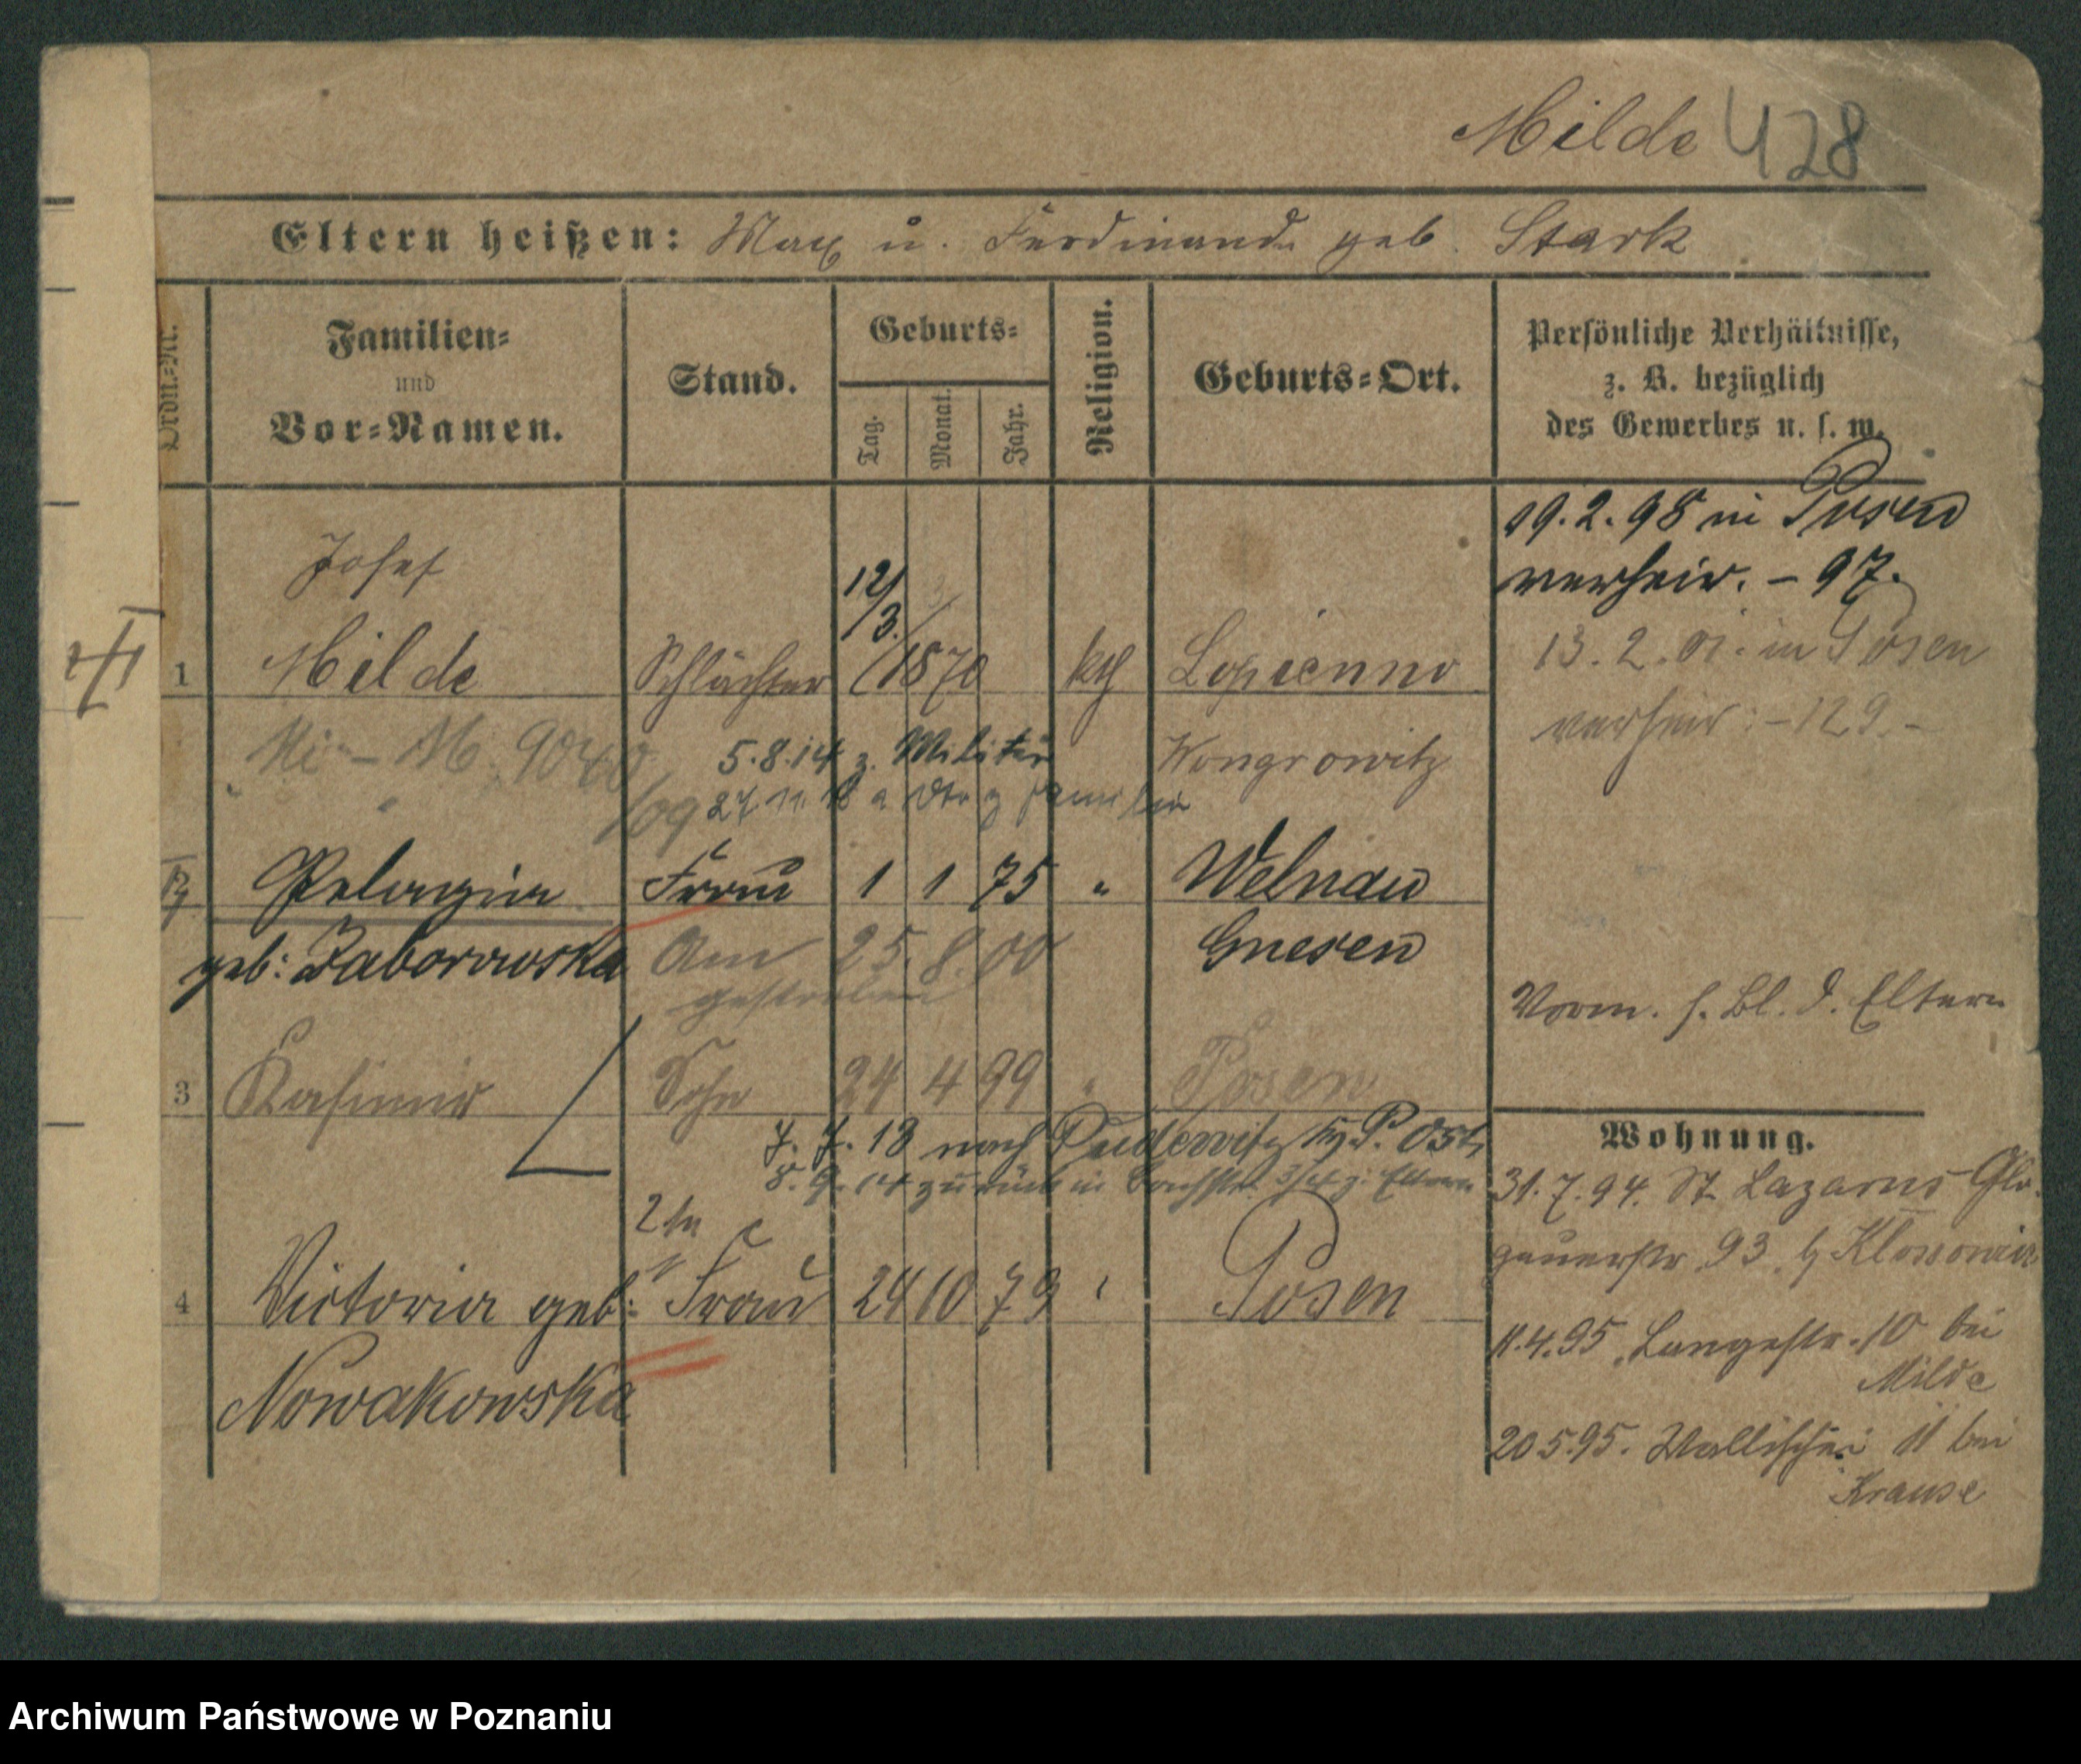 Milde 428
Eltern heißen: Max u. Ferdinande geb. Stark
Ordn.-Nr.
Familien-
und
Vor-Namen.
Stand.
Geburts-
Tag.
Monat.
Jahr.
Religion.
Geburts-Ort.
Persönliche Verhältnisse,
z. B. bezüglich
des Gewerbes u. s. w.
19.2.98 in Posen
verheir. - 97.
13.2.01. in Posen
verheir: -129.-
Josef
12/3.
1 Milde Schlächter 1870 kth Lopienno
Wongrowitz
5.8.14 z. Militär
27.11.18
Pelagia Frau 1 1 75 " Welnau
geb: Zaborowska Gnesen
Am 25.8.00
gestorben
Vorm. s. Bl. d. Eltern
3 Kasimir Sohn 24 4 99 " Posen
7.7.13 nach Pudewitz Kr. P. Ost
8.9.14 zurück in z. Eltern
2te
4 Victoria geb: Frau 24 10 79 " Posen
Nowakowska
Wohnung.
31.7.94. St. Lazarus Glo-
gauerstr. 93. b
11.4.95 Langestr. 10 bei
Milde
20.5.95. Wallischei 11 bei
Krause
Archiwum Państwowe w Poznaniu